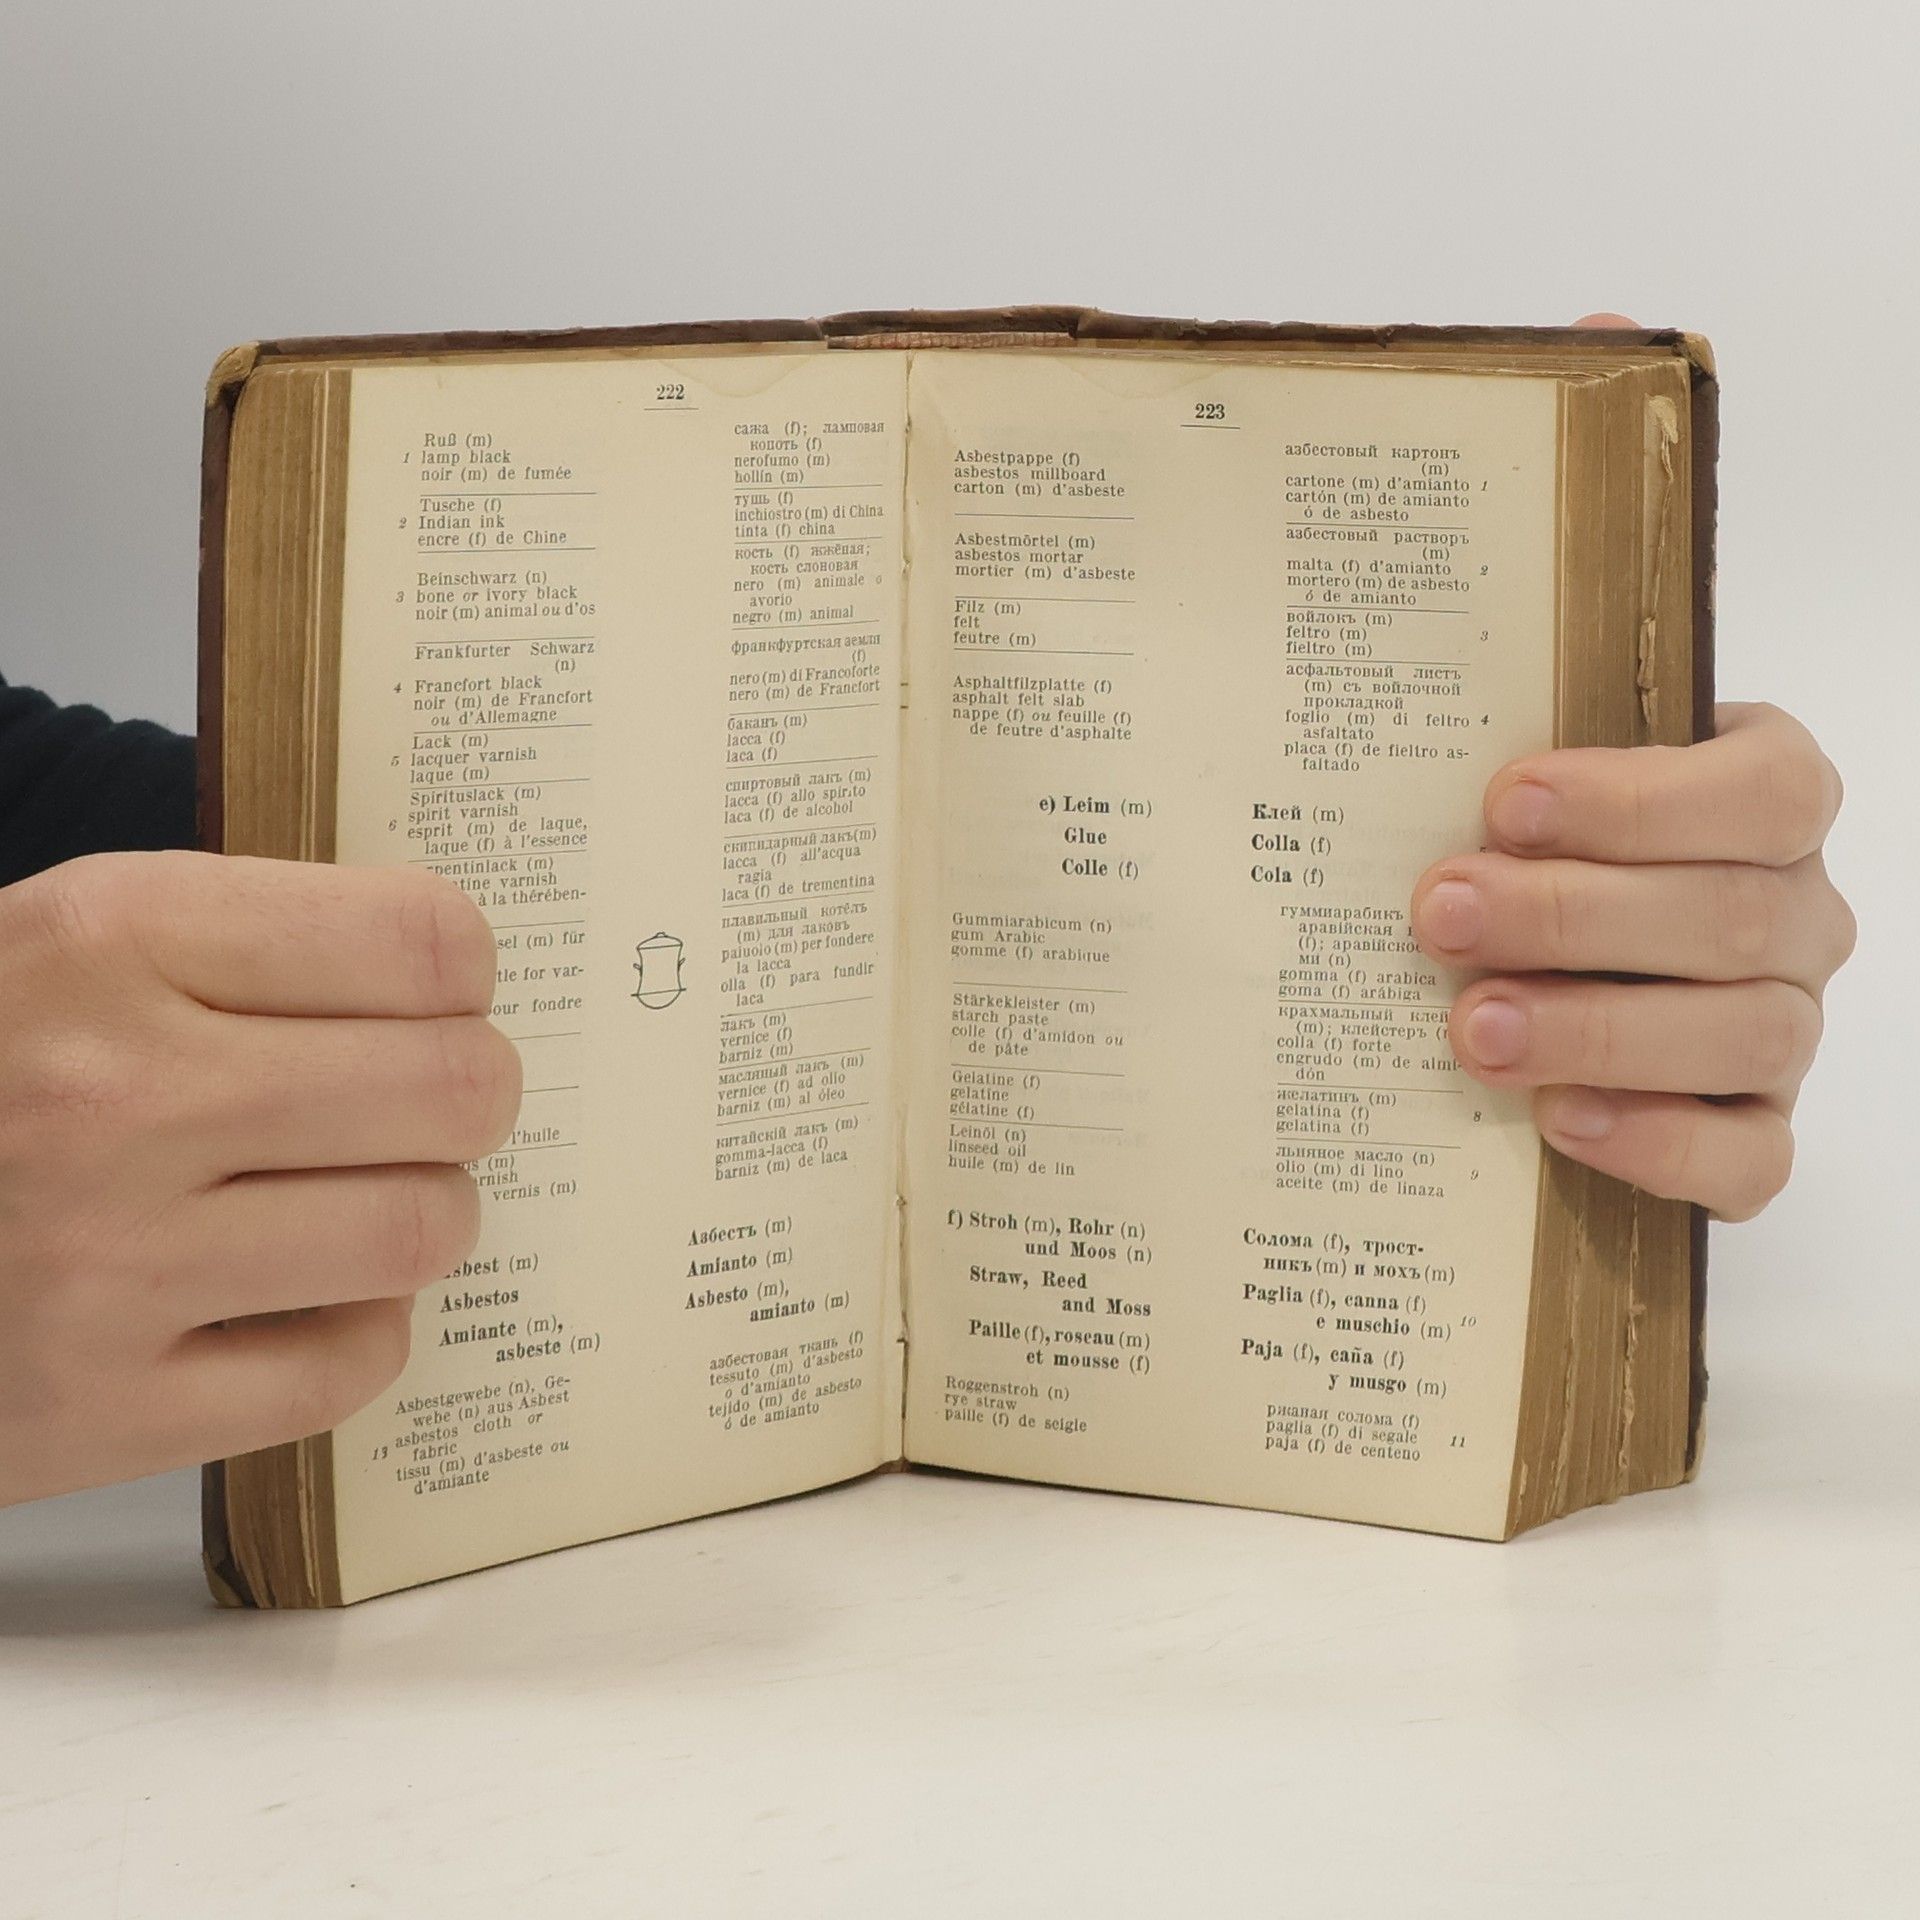 222
Ruß (m)
1 lamp black
noir (m) de fumée
Tusche (f)
2 Indian ink
encre (f) de Chine
Beinschwarz (n)
3 bone or ivory black
noir (m) animal ou d'os
Frankfurter Schwarz
(n)
4 Francfort black
noir (m) de Francfort
ou d'Allemagne
Lack (m)
5 lacquer varnish
laque (m)
Spirituslack (m)
spirit varnish
6 esprit (m) de laque,
laque (f) à l'essence
(m)
varnish
à la thérében-
(m) für
for var-
our fondre
l'huile
(m)
vernis (m)
(m)
Asbestos
Amiante (m),
asbeste (m)
Asbestgewebe (n), Ge-
webe (n) aus Asbest
asbestos cloth or
13 fabric
tissu (m) d'asbeste ou
d'amiante
сажа (f); ламповая
копоть (f)
nerofumo (m)
hollín (m)
тушь (f)
inchiostro (m) di China
tinta (f) china
кость (f) жжёная;
кость слоновая
nero (m) animale o
avorio
negro (m) animal
франкфуртская земля
(f)
nero (m) di Francoforte
nero (m) de Francfort
баканъ (m)
lacca (f)
laca (f)
спиртовый лакъ (m)
lacca (f) allo spirito
laca (f) de alcohol
скипидарный лакъ (m)
lacca (f) all'acqua
ragia
laca (f) de trementina
плавильный котёлъ
(m) для лаковъ
paiuolo (m) per fondere
la lacca
olla (f) para fundir
laca
лакъ (m)
vernice (f)
barniz (m)
масляный лакъ (m)
vernice (f) ad olio
barniz (m) al óleo
китайскій лакъ (m)
gomma-lacca (f)
barniz (m) de laca
Азбестъ (m)
Amianto (m)
Asbesto (m),
amianto (m)
азбестовая ткань (f)
tessuto (m) d'asbesto
o d'amianto
tejido (m) de asbesto
ó de amianto
223
Asbestpappe (f)
asbestos millboard
carton (m) d'asbeste
Asbestmörtel (m)
asbestos mortar
mortier (m) d'asbeste
Filz (m)
felt
feutre (m)
Asphaltfilzplatte (f)
asphalt felt slab
nappe (f) ou feuille (f)
de feutre d'asphalte
e) Leim (m)
Glue
Colle (f)
Gummiarabicum (n)
gum Arabic
gomme (f) arabique
Stärkekleister (m)
starch paste
colle (f) d'amidon ou
de pâte
Gelatine (f)
gelatine
gélatine (f)
Leinöl (n)
linseed oil
huile (m) de lin
f) Stroh (m), Rohr (n)
und Moos (n)
Straw, Reed
and Moss
Paille (f), roseau (m)
et mousse (f)
Roggenstroh (n)
rye straw
paille (f) de seigle
азбестовый картонъ
(m)
cartone (m) d'amianto 1
cartón (m) de amianto
ó de asbesto
азбестовый растворъ
(m)
malta (f) d'amianto 2
mortero (m) de asbesto
ó de amianto
войлокъ (m)
feltro (m) 3
fieltro (m)
асфальтовый листъ
(m) съ войлочной
прокладкой
foglio (m) di feltro 4
asfaltato
placa (f) de fieltro as-
faltado
Клей (m)
Colla (f)
Cola (f)
гуммиарабикъ
аравійская
(f);
ми (n)
gomma (f) arabica
goma (f) arábiga
крахмальный клей
(m); клейстеръ
colla (f) forte
engrudo (m) de almi-
dón
желатинъ (m)
gelatina (f) 8
gelatina (f)
льняное масло (n)
olio (m) di lino 9
aceite (m) de linaza
Солома (f), трост-
никъ (m) и мохъ (m)
Paglia (f), canna (f)
e muschio (m) 10
Paja (f), caña (f)
y musgo (m)
ржаная солома (f)
paglia (f) di segale 11
paja (f) de centeno